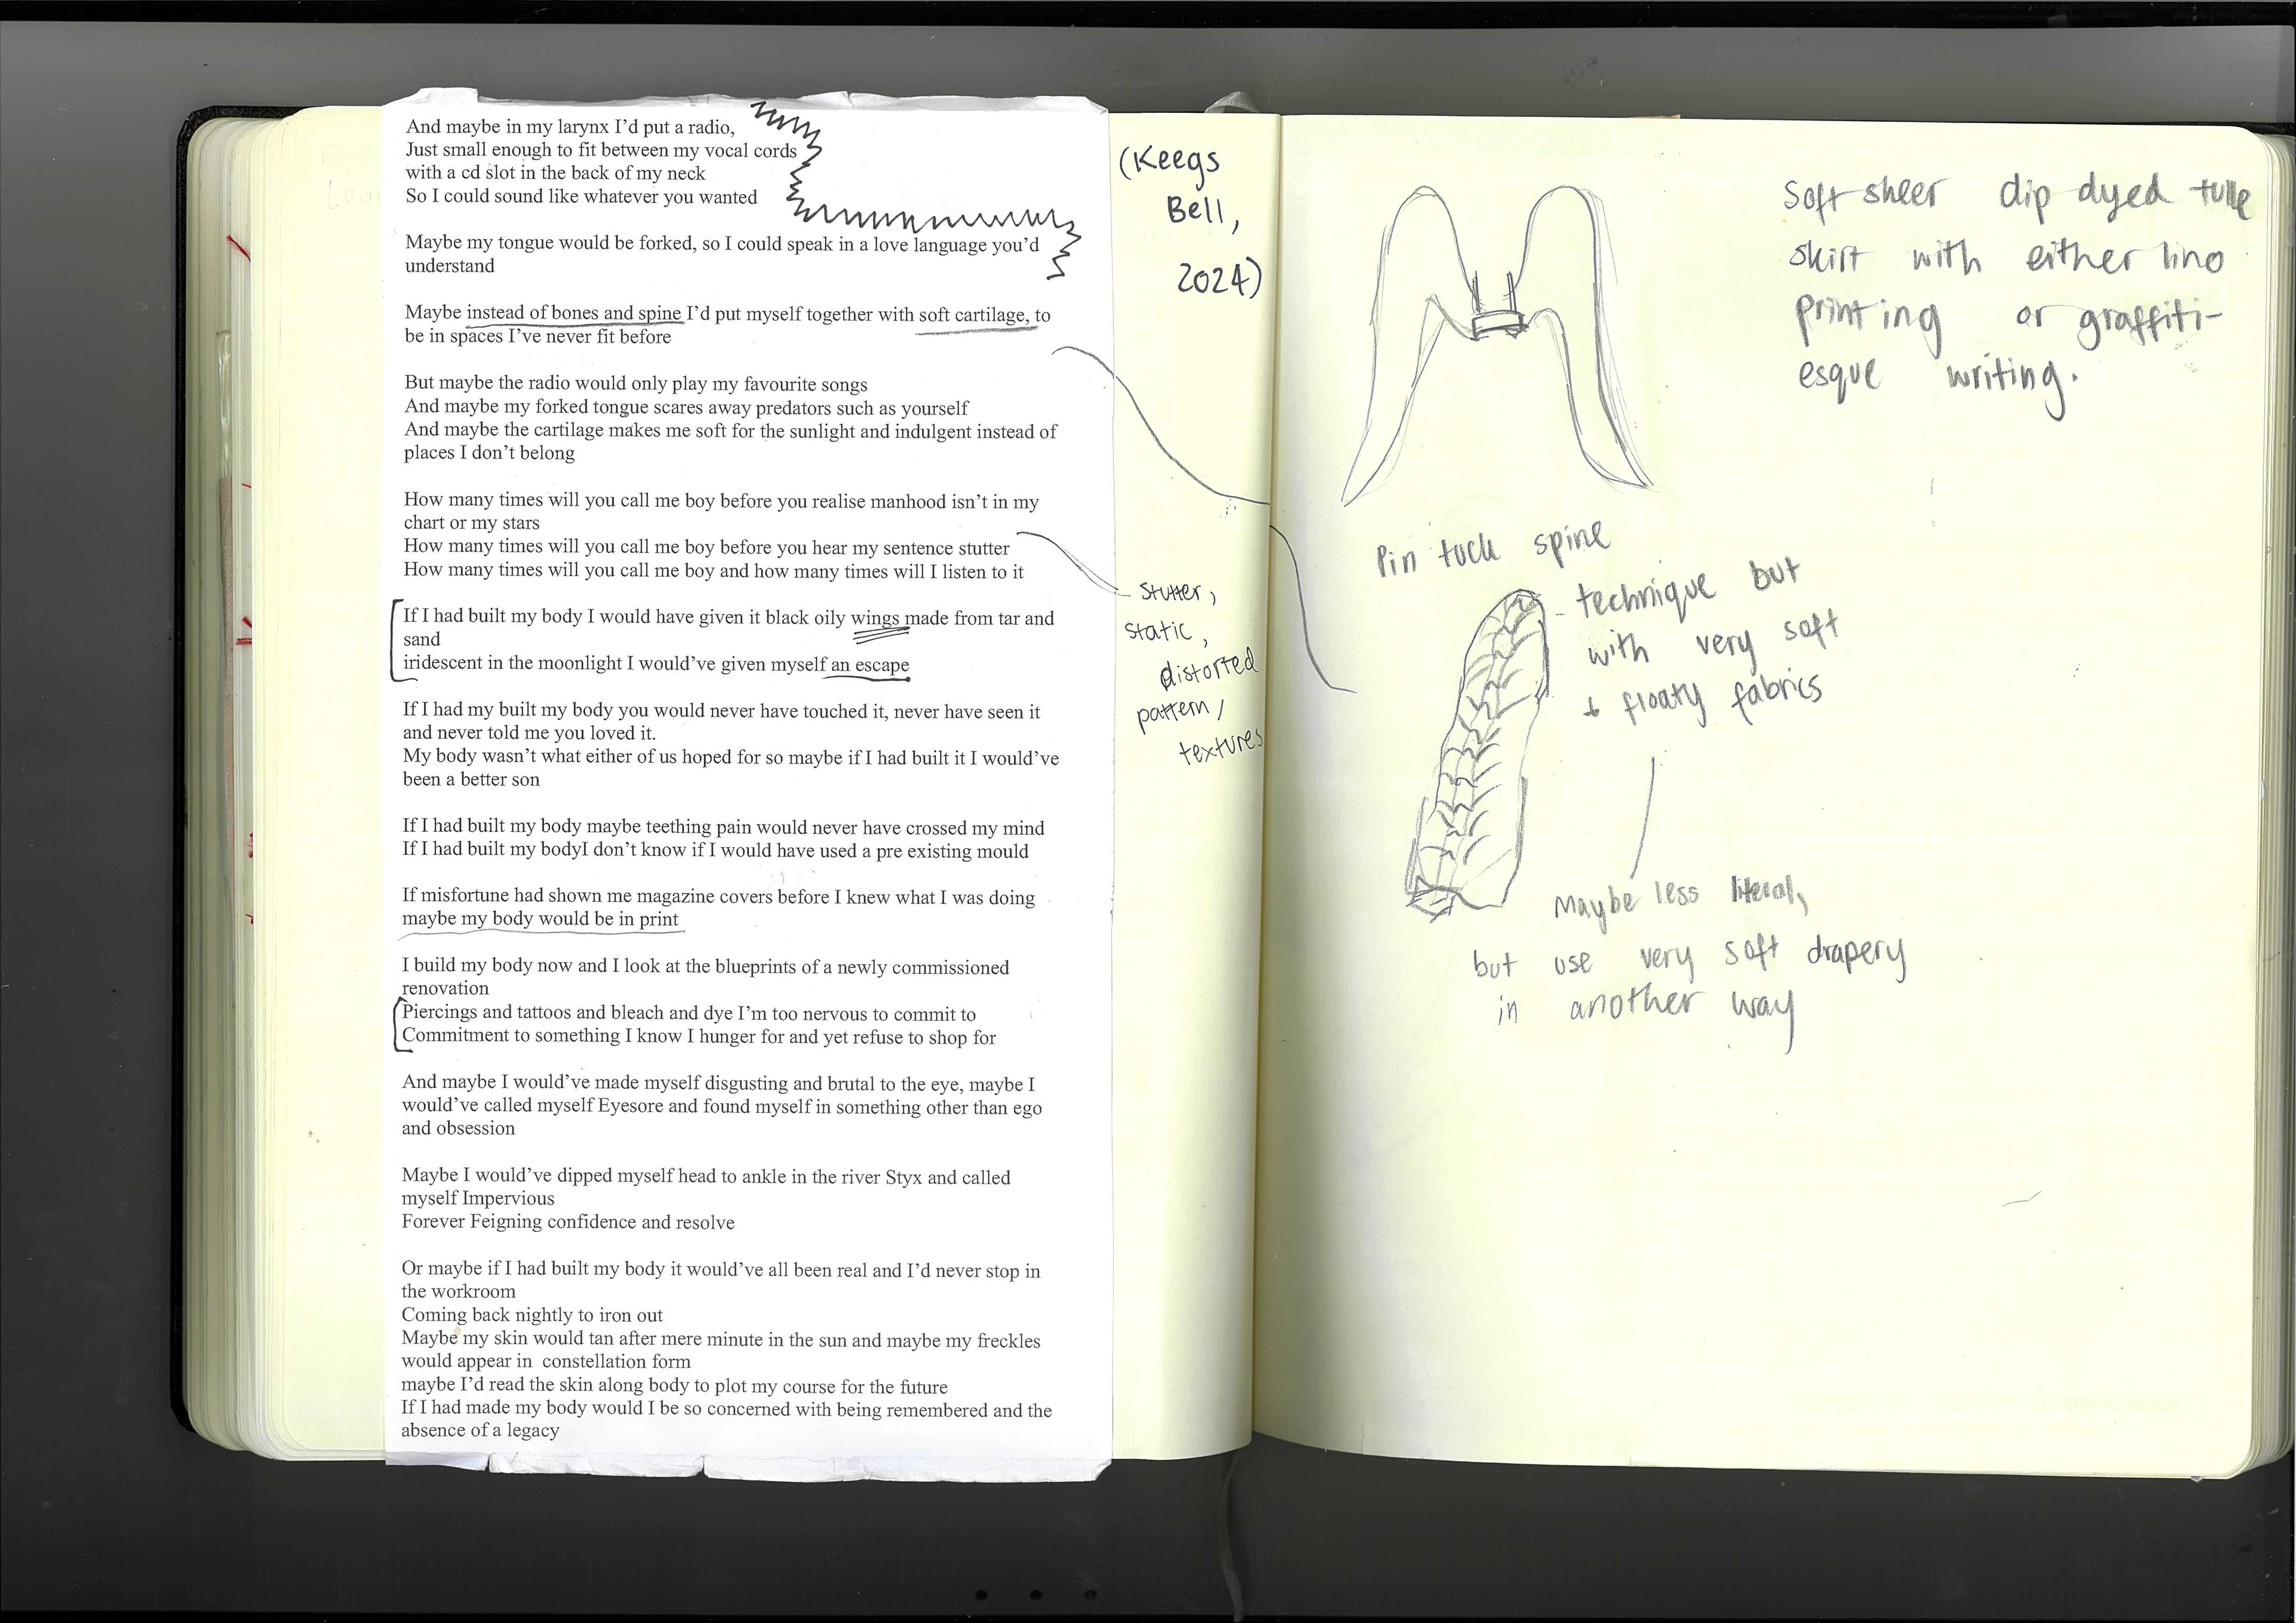 And maybe in my larynx I’d put a radio,
Just small enough to fit between my vocal cords
with a cd slot in the back of my neck
So I could sound like whatever you wanted
Maybe my tongue would be forked, so I could speak in a love language you’d
understand
Maybe instead of bones and spine I’d put myself together with soft cartilage, to
be in spaces I’ve never fit before
But maybe the radio would only play my favourite songs
And maybe my forked tongue scares away predators such as yourself
And maybe the cartilage makes me soft for the sunlight and indulgent instead of
places I don’t belong
How many times will you call me boy before you realise manhood isn’t in my
chart or my stars
How many times will you call me boy before you hear my sentence stutter
How many times will you call me boy and how many times will I listen to it
If I had built my body I would have given it black oily wings made from tar and
sand
iridescent in the moonlight I would’ve given myself an escape
If I had my built my body you would never have touched it, never have seen it
and never told me you loved it.
My body wasn’t what either of us hoped for so maybe if I had built it I would’ve
been a better son
If I had built my body maybe teething pain would never have crossed my mind
If I had built my bodyI don’t know if I would have used a pre existing mould
If misfortune had shown me magazine covers before I knew what I was doing
maybe my body would be in print
I build my body now and I look at the blueprints of a newly commissioned
renovation
Piercings and tattoos and bleach and dye I’m too nervous to commit to
Commitment to something I know I hunger for and yet refuse to shop for
And maybe I would’ve made myself disgusting and brutal to the eye, maybe I
would’ve called myself Eyesore and found myself in something other than ego
and obsession
Maybe I would’ve dipped myself head to ankle in the river Styx and called
myself Impervious
Forever Feigning confidence and resolve
Or maybe if I had built my body it would’ve all been real and I’d never stop in
the workroom
Coming back nightly to iron out
Maybe my skin would tan after mere minute in the sun and maybe my freckles
would appear in constellation form
maybe I’d read the skin along body to plot my course for the future
If I had made my body would I be so concerned with being remembered and the
absence of a legacy
(Keegs
Bell,
2024)
stutter,
static,
distorted
pattern,
textures
Soft sheer dip dyed tulle
skirt with either lino
printing or graffiti-
esque writing.
Pin tuck spine
- technique but
with very soft
+ floaty fabrics
Maybe less literal,
but use very soft drapery
in another way